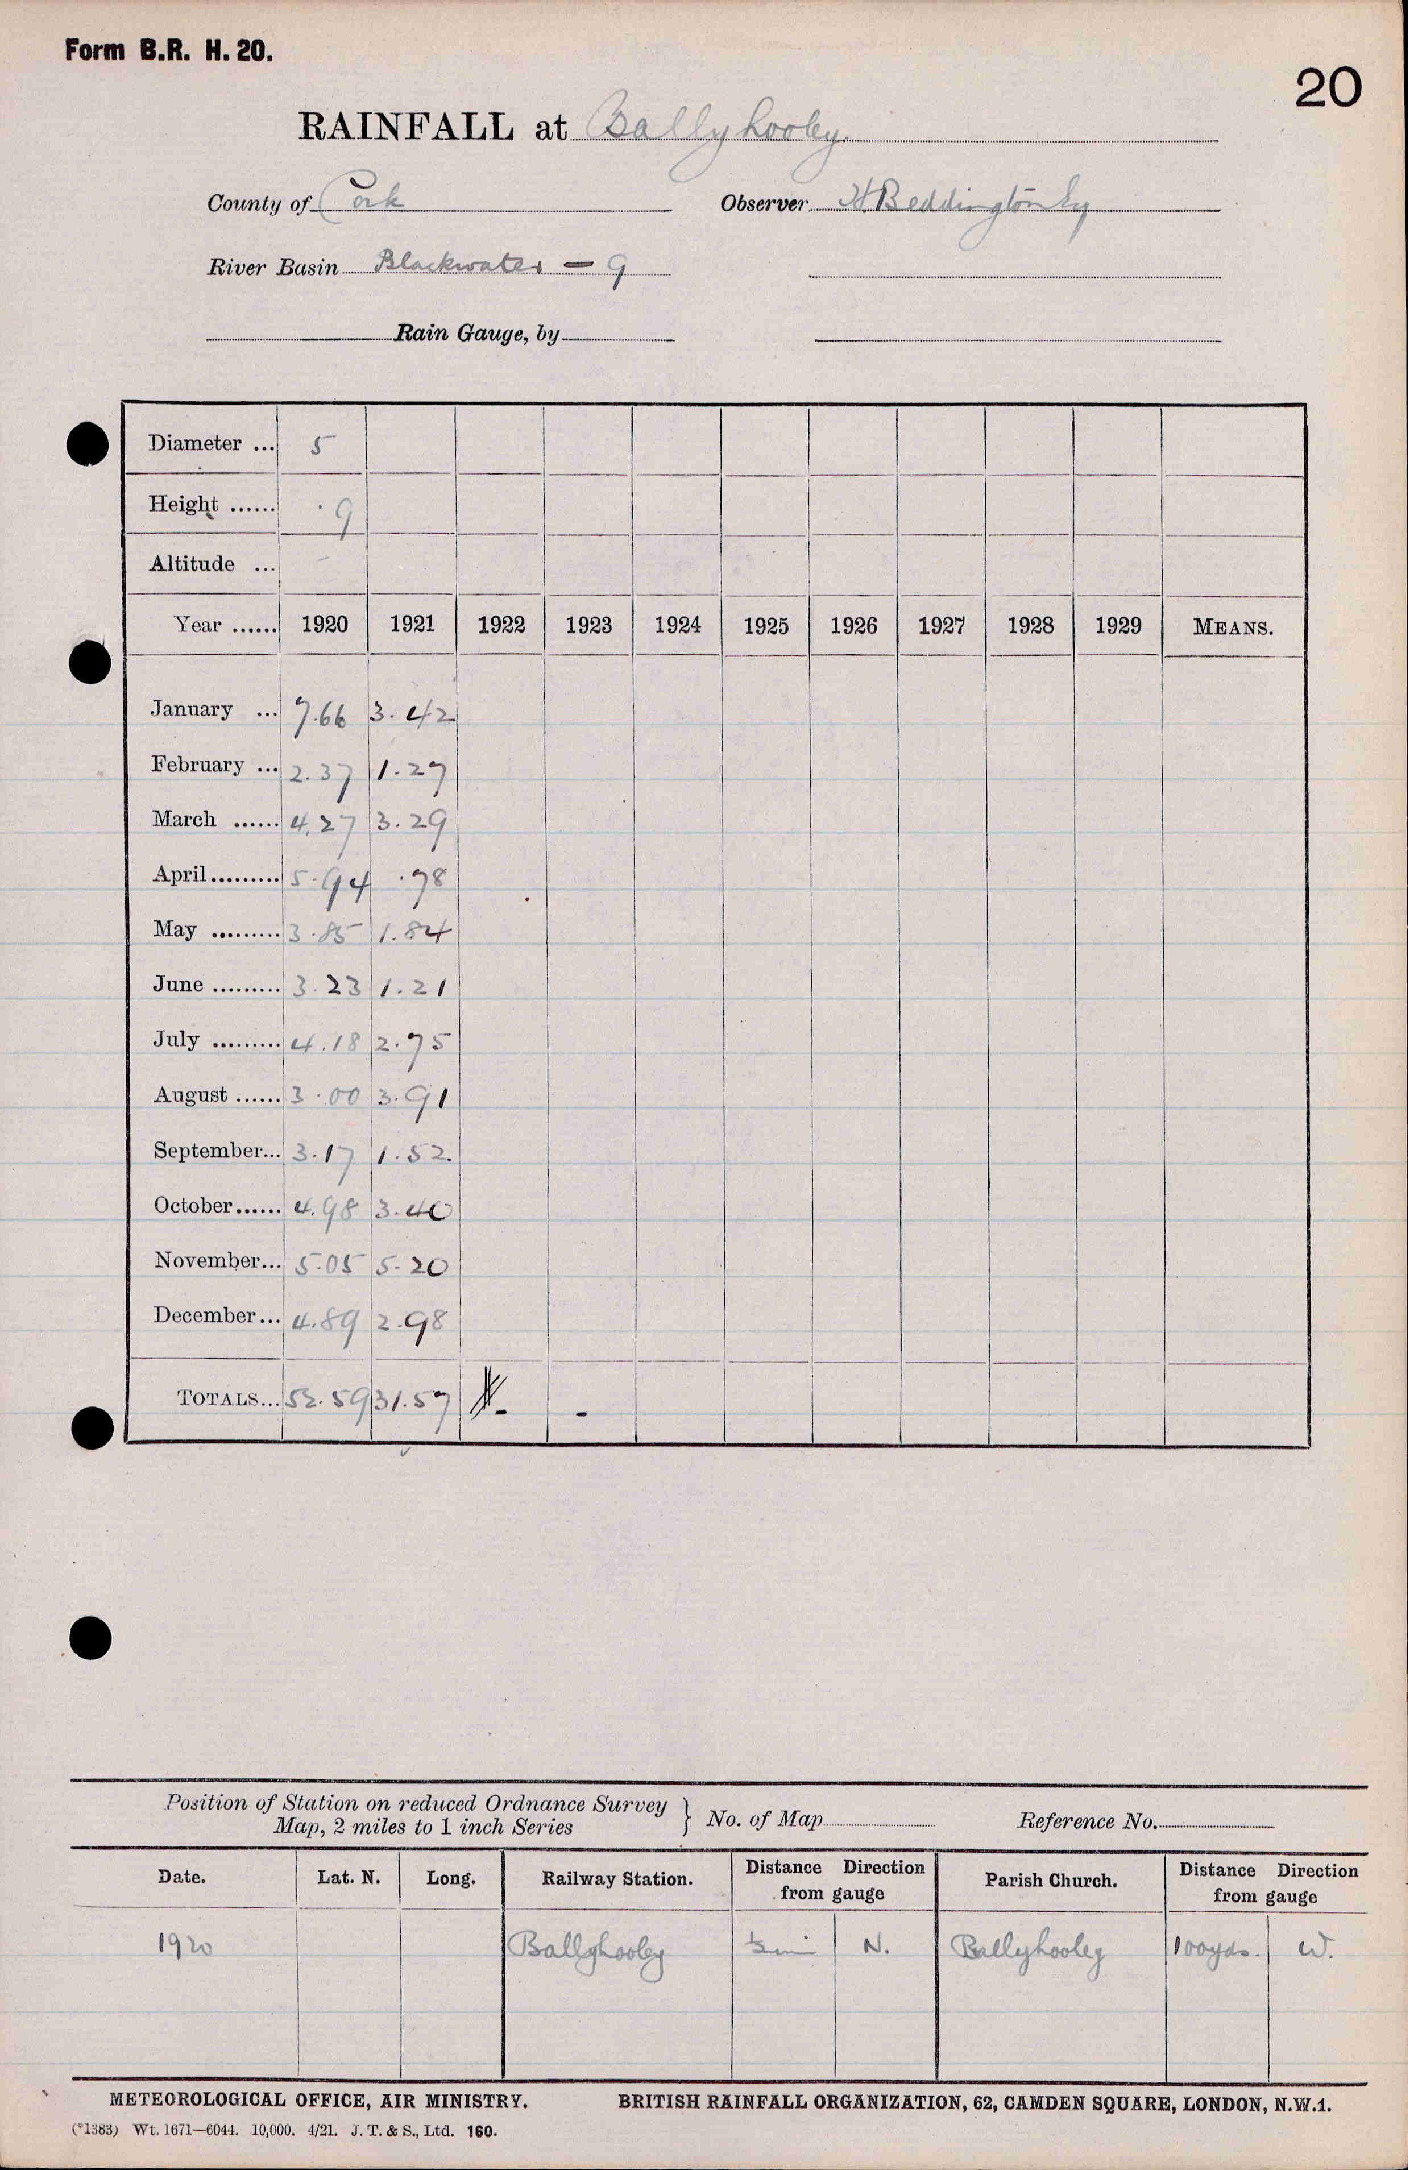 Form B.R. H. 20.
20
RAINFALL at Ballyhooley.
County of Cork Observer H. Beddington Esq
River Basin Blackwater - 9
Rain Gauge, by
Diameter ... 5
Height ...... .9
Altitude ... -
Year ...... 1920 1921 1922 1923 1924 1925 1926 1927 1928 1929 MEANS.
January ... 7.66 3.42
February ... 2.37 1.27
March ...... 4.27 3.29
April......... 5.94 .78
May ......... 3.85 1.84
June ......... 3.23 1.21
July ......... 4.18 2.75
August ...... 3.00 3.91
September... 3.17 1.52
October...... 4.98 3.40
November... 5.05 5.20
December... 4.89 2.98
TOTALS... 52.59 31.57 - -
Position of Station on reduced Ordnance Survey
Map, 2 miles to 1 inch Series } No. of Map Reference No.
Date. Lat. N. Long. Railway Station. Distance Direction from gauge Parish Church. Distance Direction from gauge
1920 Ballyhooley ½ mi N. Ballyhooley 100yds. W.
METEOROLOGICAL OFFICE, AIR MINISTRY. BRITISH RAINFALL ORGANIZATION, 62, CAMDEN SQUARE, LONDON, N.W.1.
(*1383) Wt. 1671—6044. 10,000. 4/21. J. T. & S., Ltd. 160.